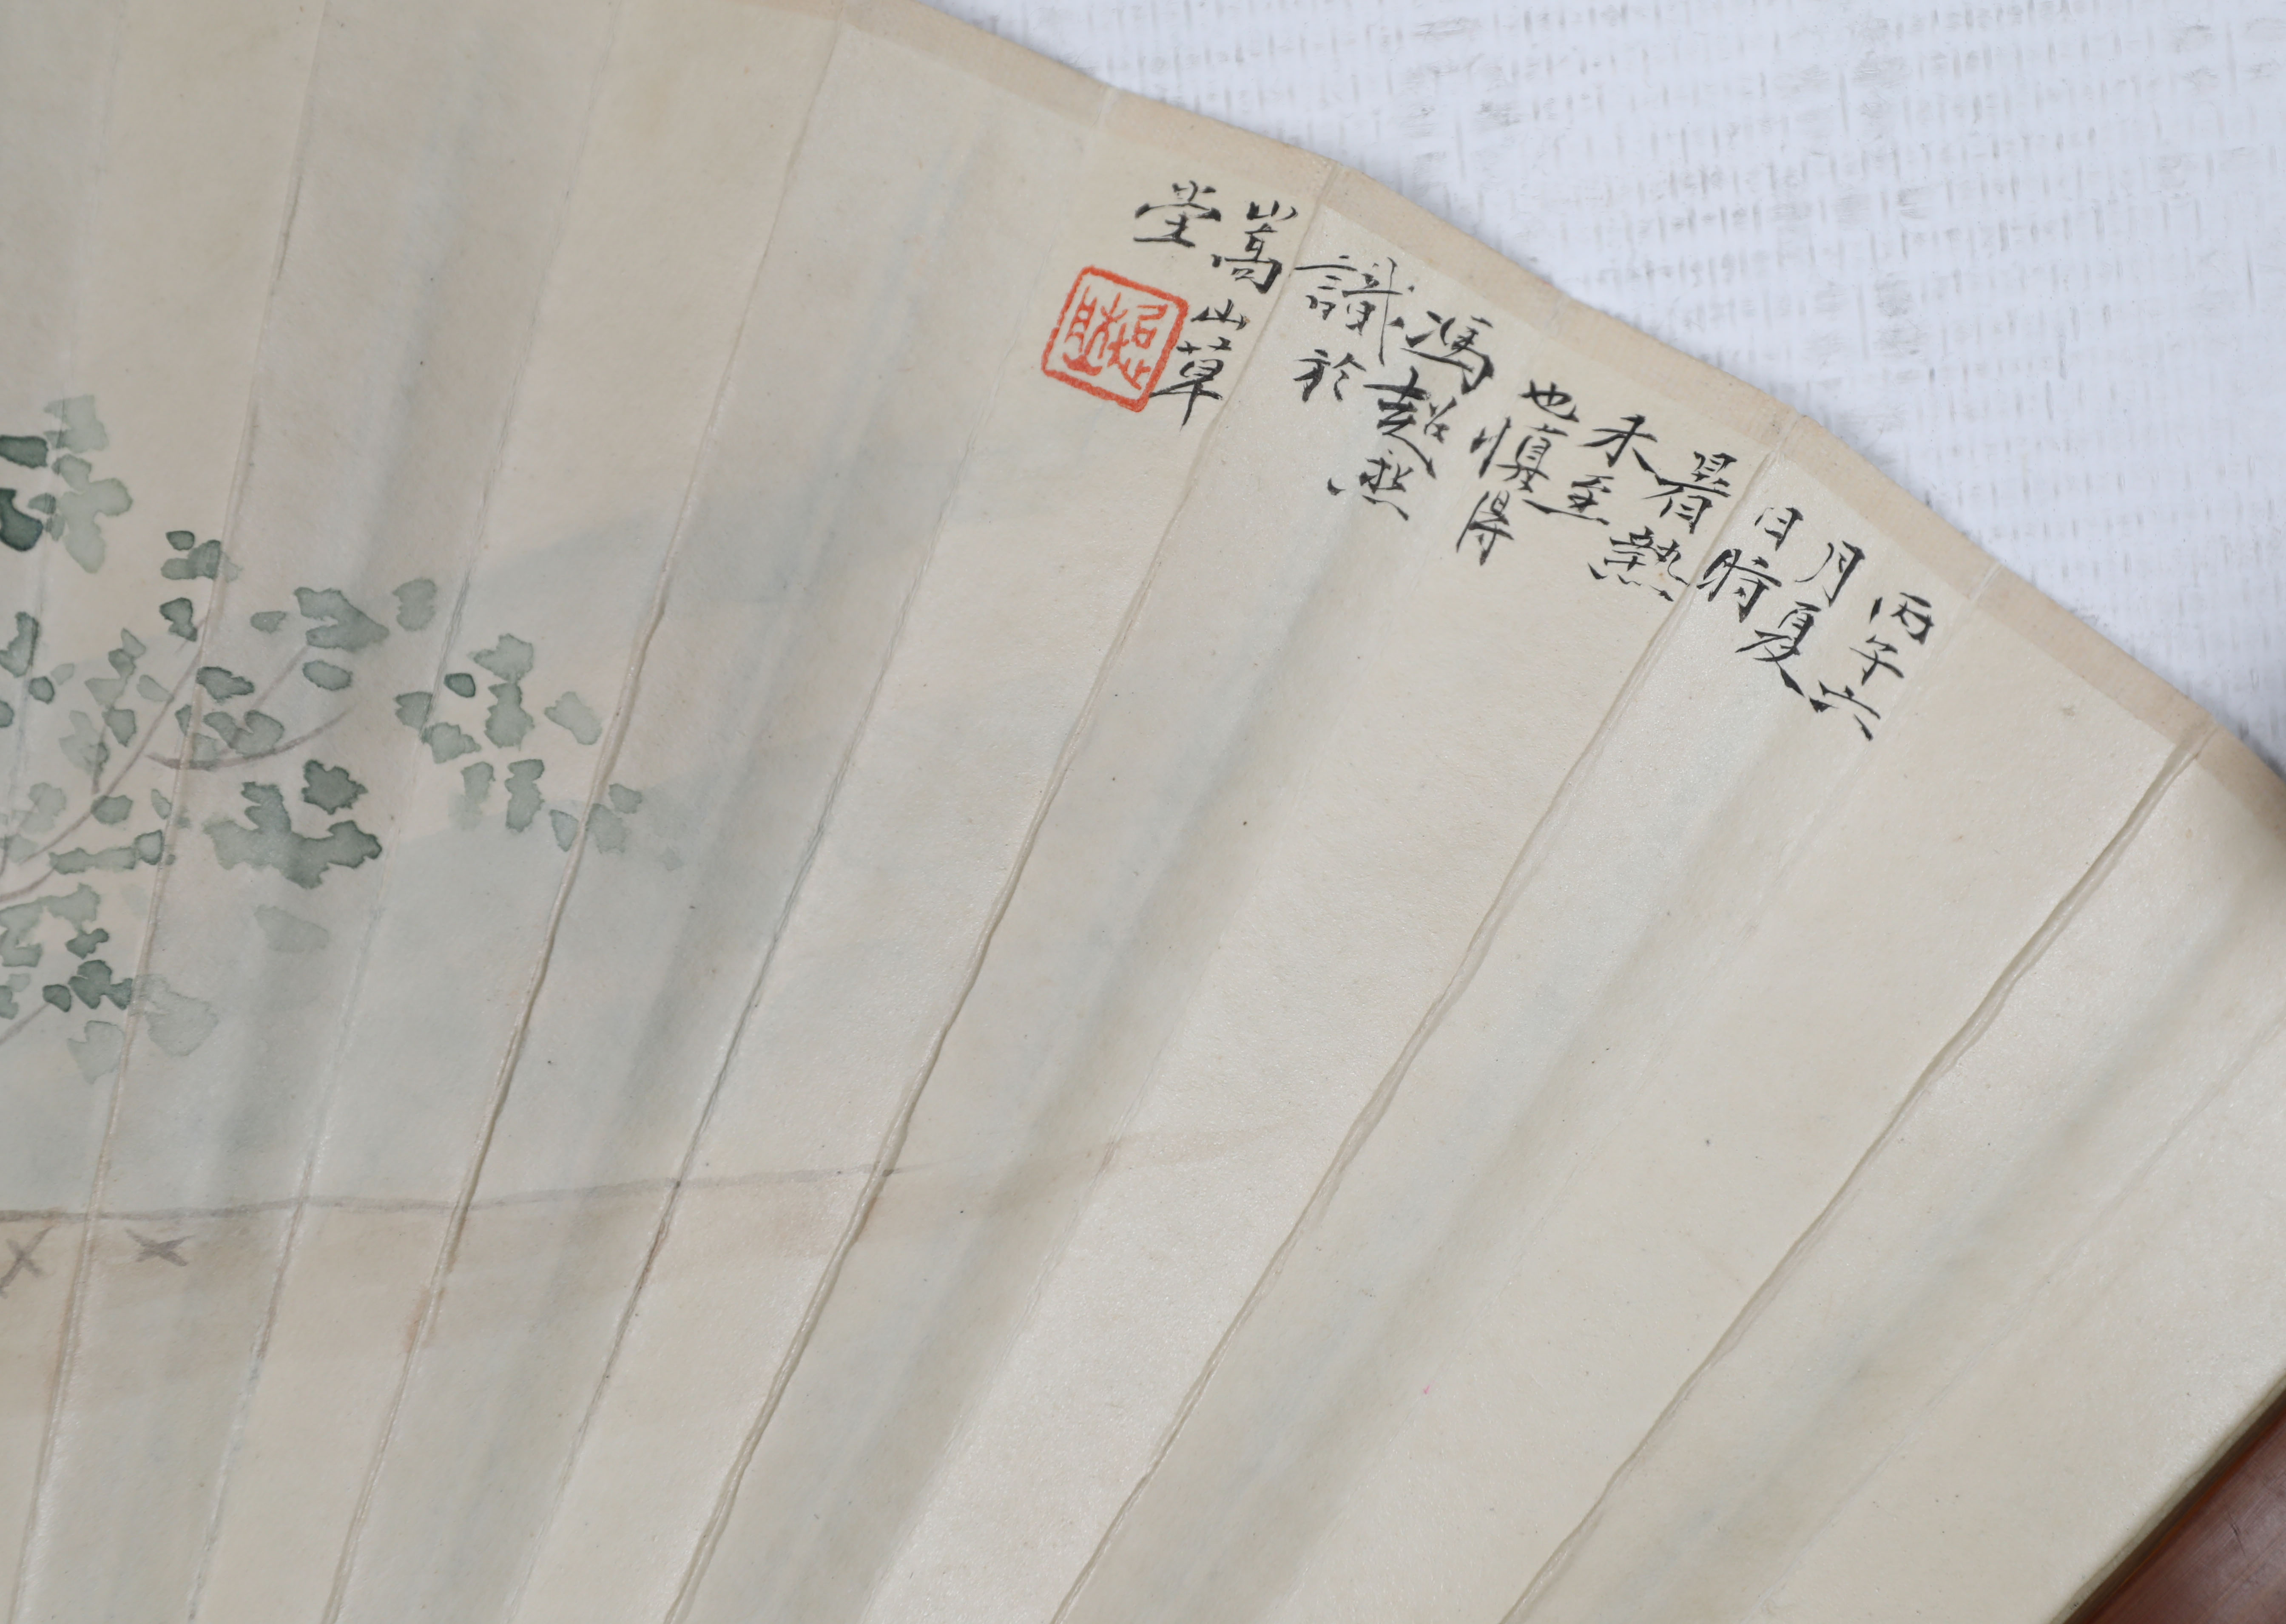 丙子六
月夏
日時
暑熱
未至
也慎得
馮超然
識於
嵩山草
堂
超然